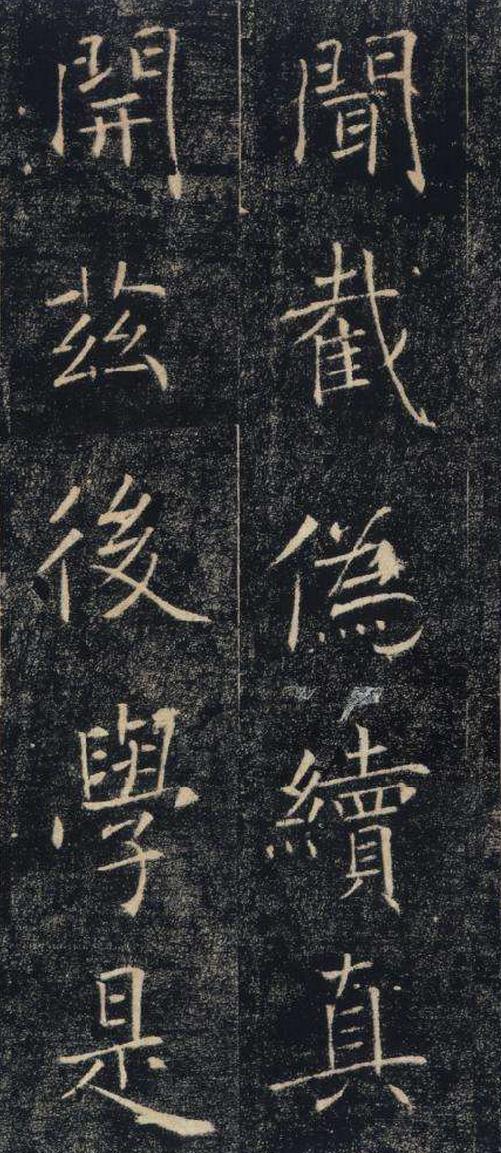 聞截偽續真
開茲後學是